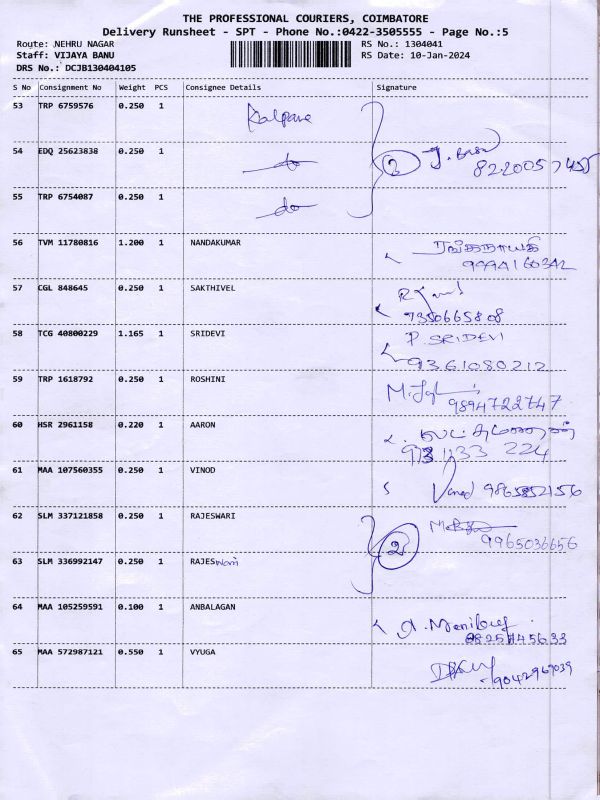 THE PROFESSIONAL COURIERS, COIMBATORE
Delivery Runsheet - SPT - Phone No.:0422-3505555 - Page No.:5
Route: NEHRU NAGAR RS No.: 1304041
Staff: VIJAYA BANU RS Date: 10-Jan-2024
DRS No.: DCJB130404105
S No Consignment No Weight PCS Consignee Details Signature
53 TRP 6759576 0.250 1 Kalpana
54 EDQ 25623838 0.250 1 do 2
55 TRP 6754087 0.250 1 do
56 TVM 11780816 1.200 1 NANDAKUMAR ரங்கநாயகி
9994160342
57 CGL 848645 0.250 1 SAKTHIVEL
9350665808
58 TCG 40800229 1.165 1 SRIDEVI P. SRIDEVI
9361080212
59 TRP 1618792 0.250 1 ROSHINI
9894722747
60 HSR 2961158 0.220 1 AARON
224
61 MAA 107560355 0.250 1 VINOD Vinod
62 SLM 337121858 0.250 1 RAJESWARI
9965036656
2
63 SLM 336992147 0.250 1 RAJESwari
64 MAA 105259591 0.100 1 ANBALAGAN
65 MAA 572987121 0.550 1 VYUGA